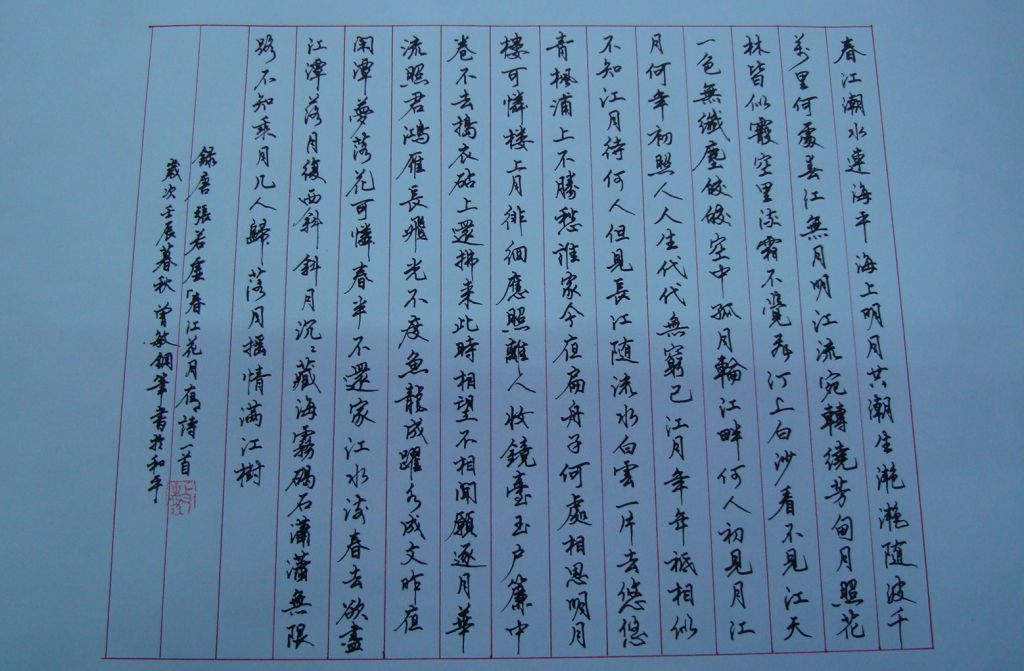 春江潮水連海平海上明月共潮生滟滟随波千
萬里何處春江無月明江流宛轉繞芳甸月照花
林皆似霰空里流霜不覺飛汀上白沙看不見江天
一色無纖塵皎皎空中孤月輪江畔何人初見月江
月何年初照人人生代代無窮已江月年年祗相似
不知江月待何人但見長江随流水白雲一片去悠悠
青楓浦上不勝愁誰家今夜扁舟子何處相思明月
樓可憐樓上月徘徊應照離人妝鏡臺玉户簾中
卷不去搗衣砧上還拂来此時相望不相聞願逐月華
流照君鴻雁長飛光不度魚龍成躍水成文昨夜
閑潭夢落花可憐春半不還家江水流春去欲盡
江潭落月復西斜斜月沉沉藏海霧碣石瀟瀟無限
路不知乘月几人歸落月摇情滿江樹
錄唐張若虚「春江花月夜」詩一首
歲次壬辰暮秋曾敏鋼筆書於和平